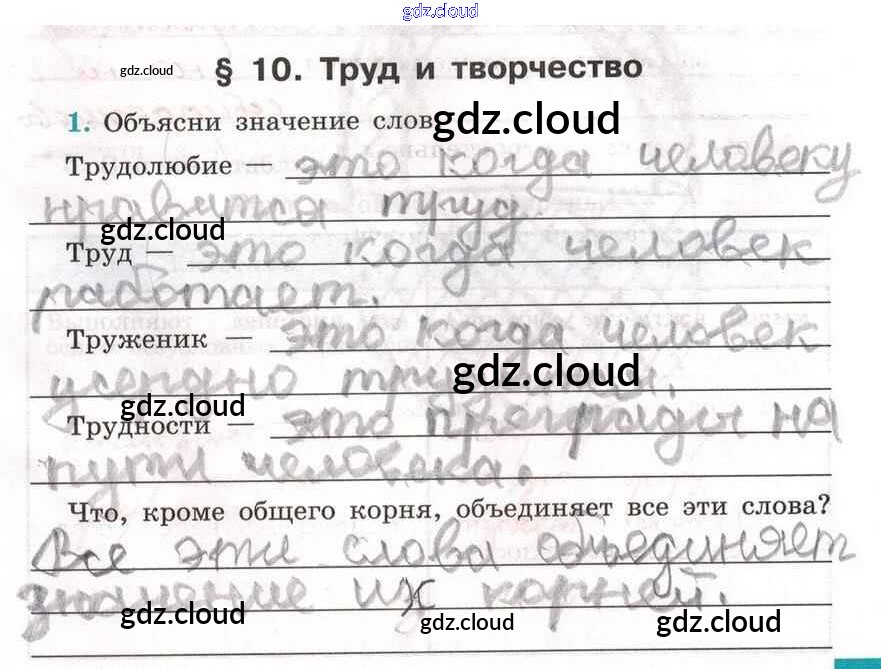 gdz.cloud
gdz.cloud
§ 10. Труд и творчество
1. Объясни значение слов
gdz.cloud
Трудолюбие — это когда человеку
нравится труд
gdz.cloud
Труд — это когда человек
работает.
Труженик — это когда человек
усердно
gdz.cloud
gdz.cloud
Трудности — это преграды на
пути человека.
Что, кроме общего корня, объединяет все эти слова?
Все эти слова объединяет
значение их корней.
gdz.cloud
gdz.cloud
gdz.cloud